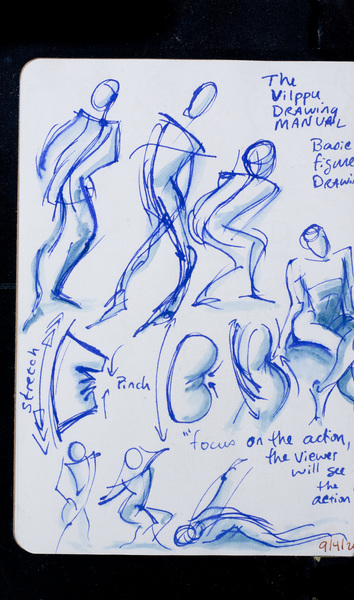 The
Vilppu
DRAWING
MANUAL
Basic
figure
DRAWIN
Stretch
Pinch
"focus on the action,
the viewer
will see
the
action
9/4/2